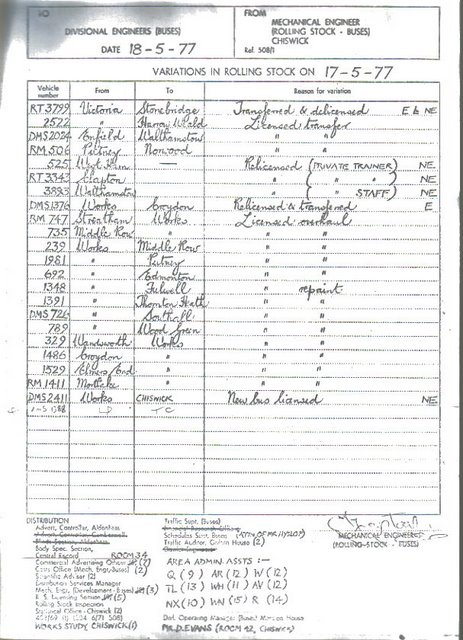 TO
DIVISIONAL ENGINEERS (BUSES)
DATE 18-5-77
FROM
MECHANICAL ENGINEER
(ROLLING STOCK - BUSES)
CHISWICK
Ref. 508/1
VARIATIONS IN ROLLING STOCK ON 17-5-77
Vehicle number From To Reason for variation
RT 3799 Victoria Stonebridge Transferred & delicensed E b NE
2522 " Harrow Weald Licensed transfer
DMS 2024 Enfield Walthamstow " "
RM 506 Putney Norwood " "
525 West Ham Relicensed (PRIVATE TRAINER) NE
RT 3343 Clapton " " " NE
3893 Walthamstow " STAFF) NE
DMS 1376 Works Croydon Relicensed & transferred E
RM 747 Streatham Works Licensed overhaul
735 Middle Row " " "
239 Works Middle Row " "
1981 " Putney " "
692 " Edmonton " "
1348 " Fulwell " repaint
1391 " Thornton Heath " "
DMS 726 " Southall " "
789 " Wood Green " "
329 Wandsworth Works " "
1486 Croydon " " "
1529 Elmers End " " "
RM 1411 Mortlake " " "
DMS 2411 Works CHISWICK New bus licensed NE
DISTRIBUTION
Advert. Controller, Aldenham
Body Spec. Section,
Central Record ROOM 34
Commercial Advertising Officer (2)
Claims Office (Mech. Engr. Buses) (2)
Scientific Adviser (2)
Distribution Services Manager
Mech. Engr. (Development - Buses) (3)
Rolling Stock Inspection
Statistical Office - Chiswick (2)
WORKS STUDY, CHISWICK (1)
Traffic Supt. (Buses)
Schedules Supt. (Buses)
Traffic Auditor, Griffith House (2)
AREA ADMIN. ASSTS :-
Q (9) AR (12) W (12)
TL (13) WH (11) AV (12)
NX (10) WN (15) R (14)
Dist. Operating Manager (Buses) Manson House
MR. D. EVANS (ROOM 42, CHISWICK)
MECHANICAL ENGINEER
(ROLLING STOCK - BUSES)